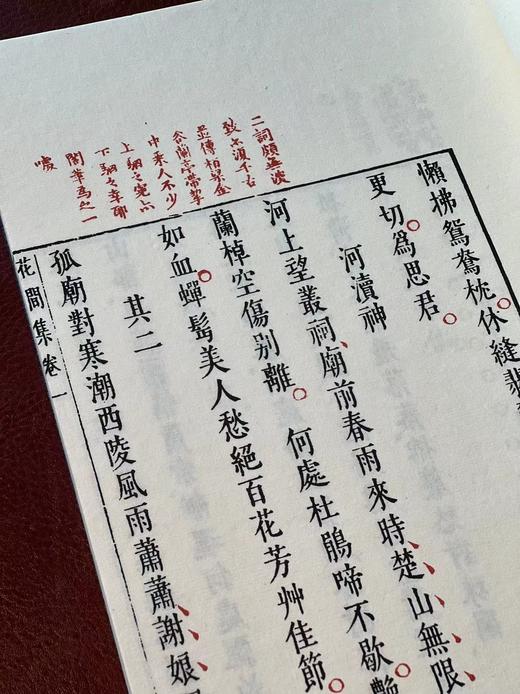 二詞頗無淡
致亦復千古
並傳柏翠金
谷蘭亭帶挈
中來人不少
上駟之冤亦
下駟之幸聊
閣筆為之一
噱
懶拂鴛鴦枕。休縫翡
更切。為思君。
河瀆神
河上望叢祠、廟前春雨來時、楚山無限
蘭棹空傷別離。何處杜鵑啼不歇。艷
如血。蟬鬂美人愁絕百花芳艸佳節
其二
孤廟對寒潮西陵風雨蕭蕭、謝娘
花間集卷一